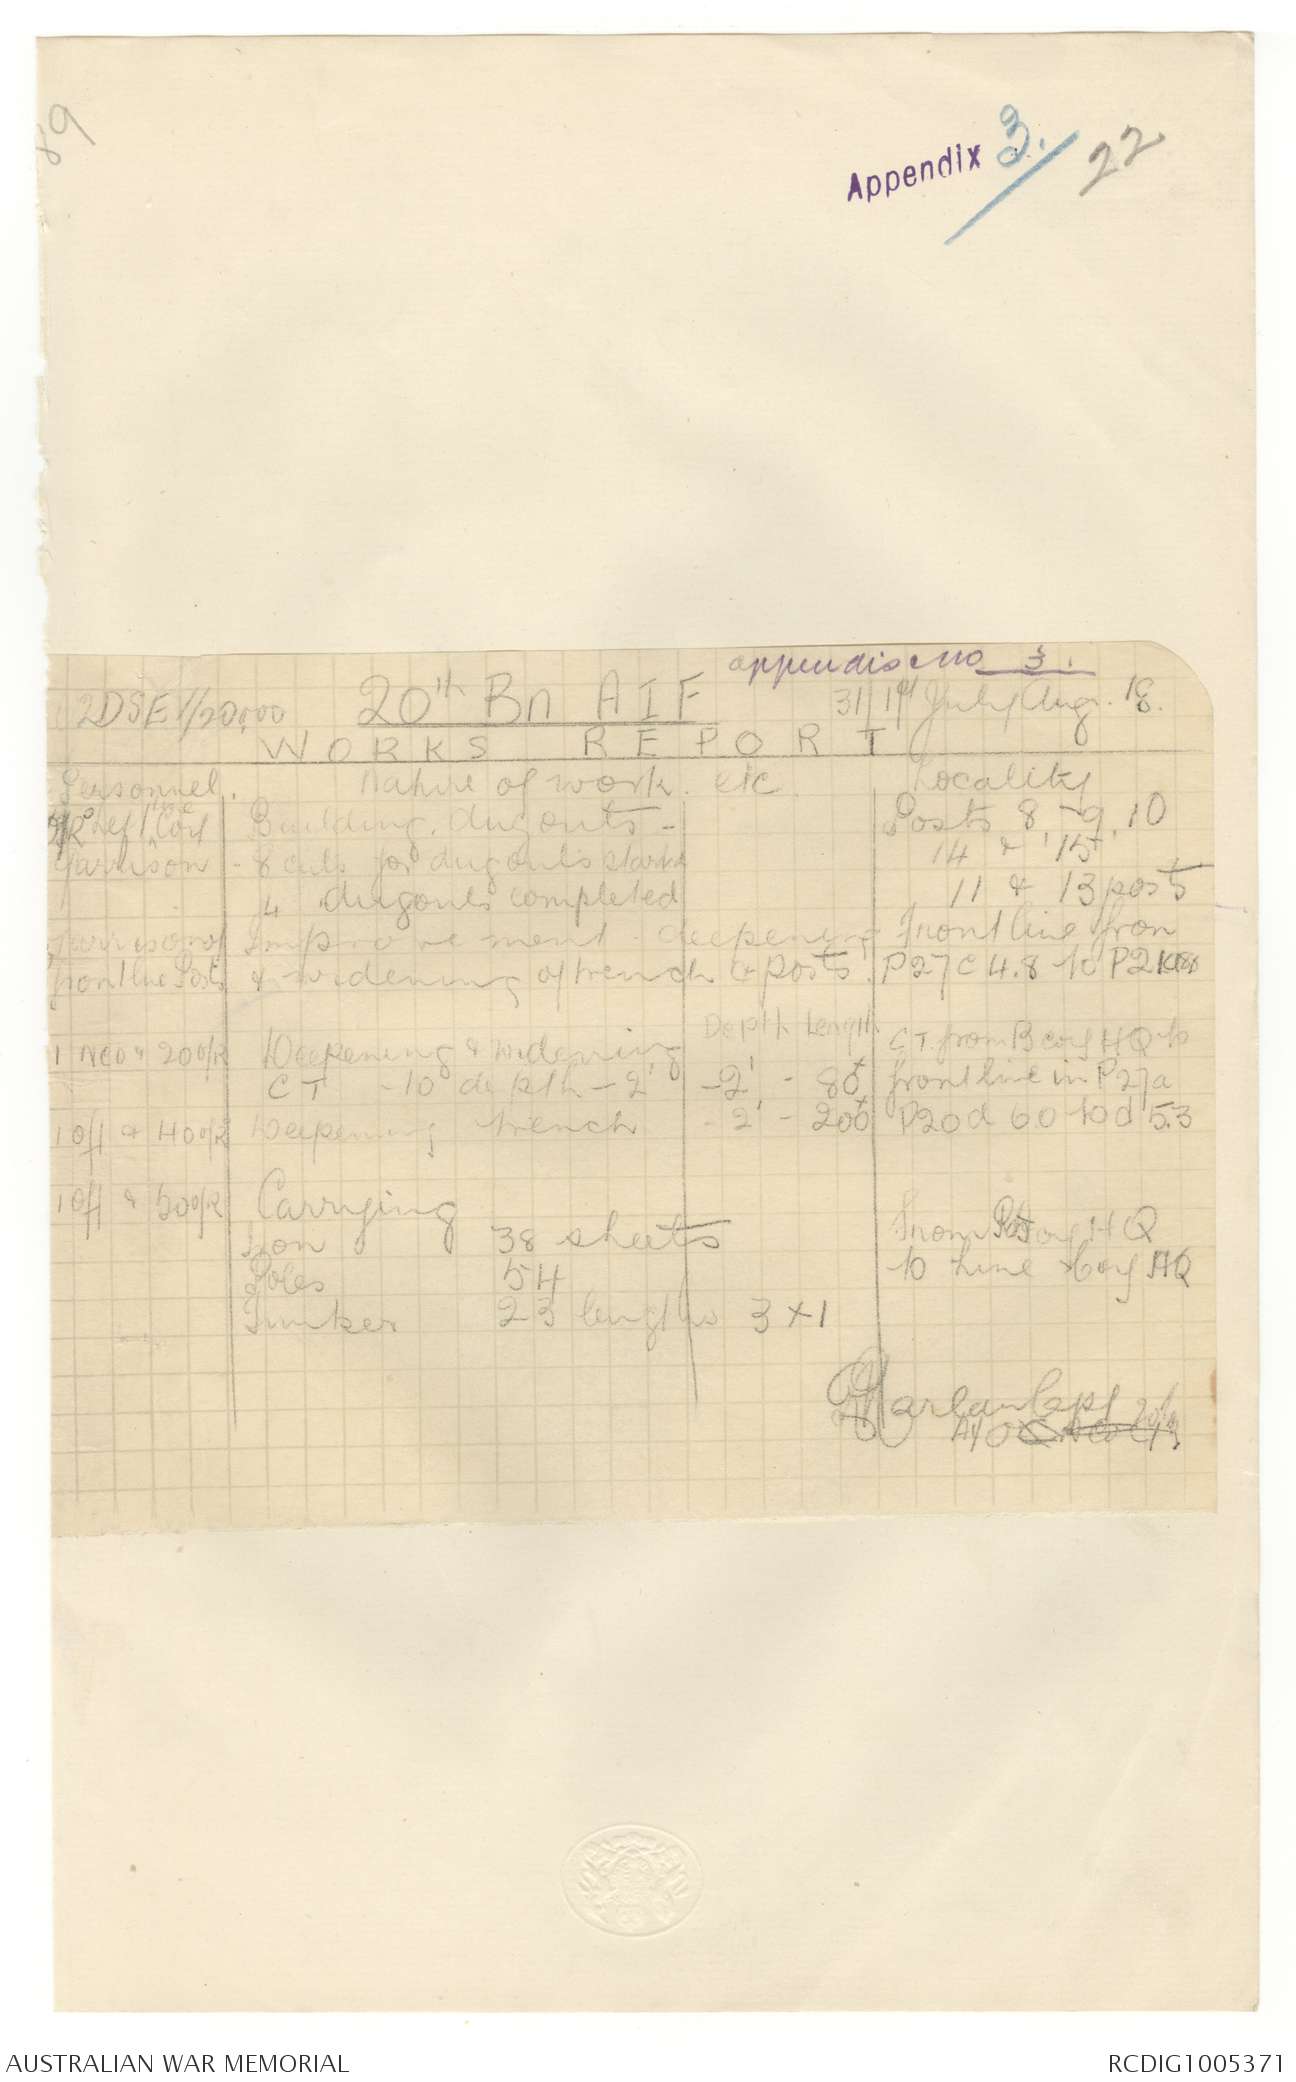 89
Appendix 3. / 22
appendix No 3.
2DSE 1/20,000 20th Bn AIF 31/1st July/Aug. 18.
WORKS REPORT
Personnel. Nature of work. etc Locality
Left Coy Building. dugouts - Posts 8, 9, 10
Garrison - 8 cuts for dugouts started 14 & 15
4 dugouts completed 11 & 13 posts
Garrison of Improvement - deepening Front line from
front line Posts & widening of trench & posts. P27c 4.8 to
Depth Length
1 NCO & 20 O/R Deepening & widening CT. from B Coy HQ to
CT - to depth - 2' - 2' - 80x front line in P27a
1 Off & 40 O/R Deepening trench - 2' - 200x P20d 6.0 to d 5.3
1 Off & 50 O/R Carrying
Iron 38 sheets From Coy HQ
Poles 54 to Line Coy HQ
Timber 23 lengths 3 x 1
Harlan Capt
AUSTRALIAN WAR MEMORIAL RCDIG1005371